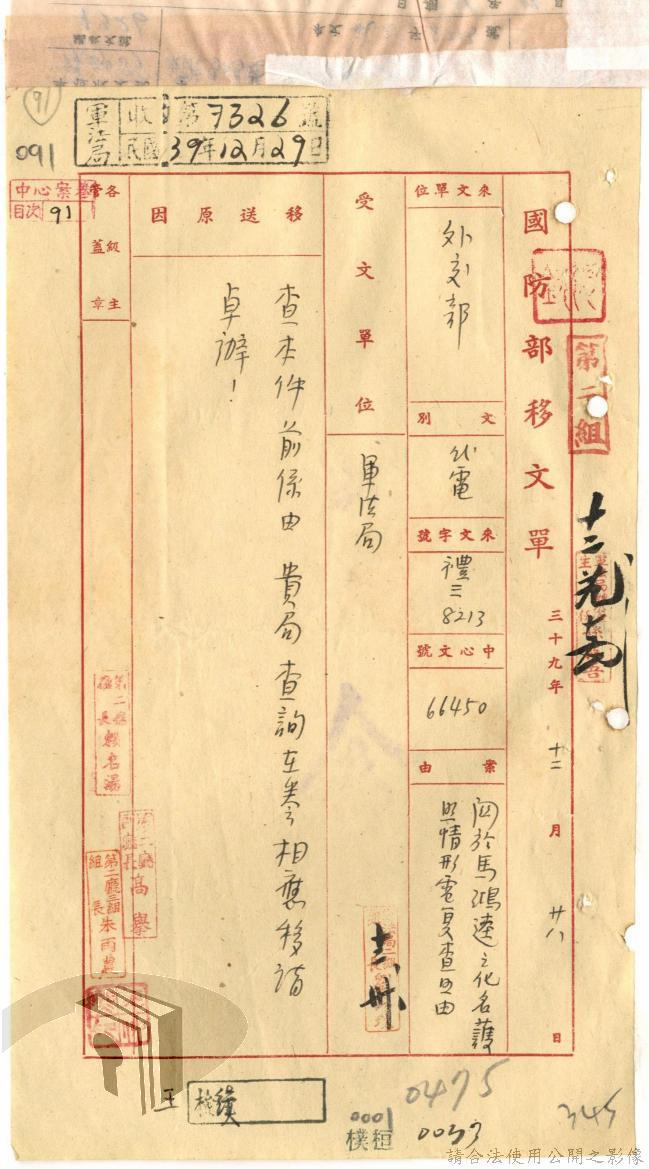 91
091
軍法局 收 第7326號
民國39年12月29日
中心案卷
目次 91
國防部移文單
三十九年十二月廿八日
第二組
來文單位
外交部
文別
代電
來文字號
禮三
8213
中心文號
66450
案由
關於馬鴻逵之化名護
照情形電复查照由
受文單位
軍法局
移送原因
查本件前係由 貴局查詢在卷相應移請
卓辦！
各級主管蓋章
第二廳
廳長賴名湯
高舉
第二廳三組
組長朱雨農
王
0475
0001
0037
345
請合法使用公開之影像